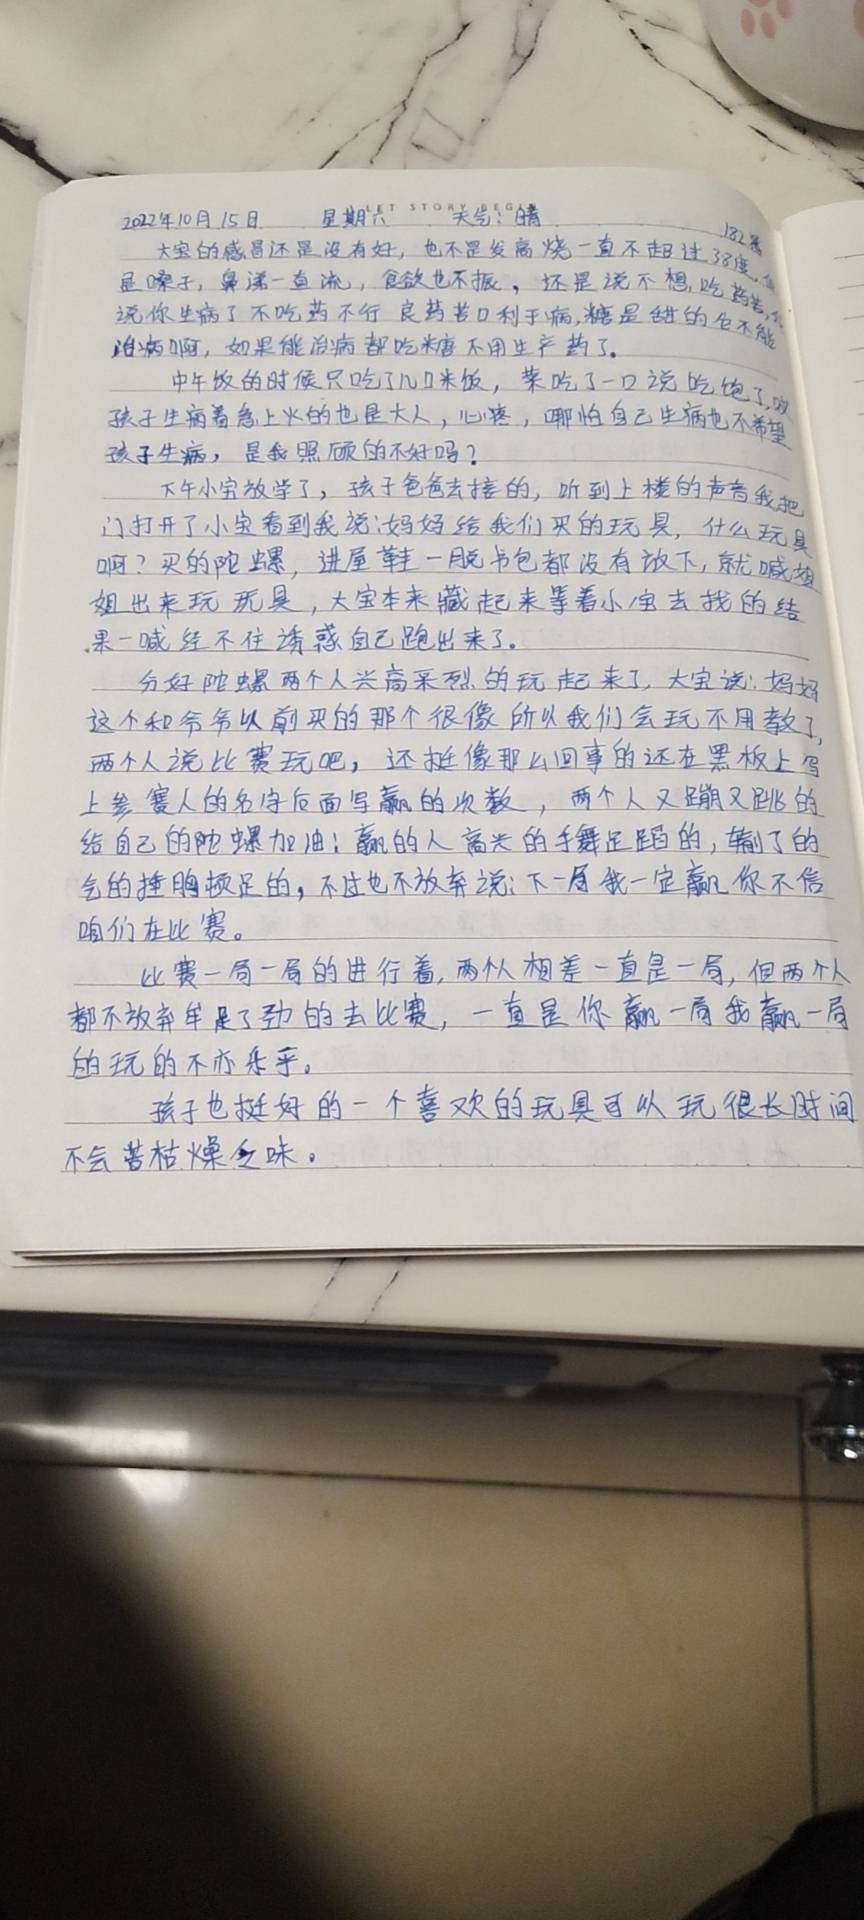 LET STORY BEGIN
2022年10月15日 星期六 天气:晴 182篇
大宝的感冒还是没有好，也不是发高烧一直不超过38度，
是嗓子，鼻涕一直流，食欲也不振，还是说不想吃药苦，
说你生病了不吃药不行良药苦口利于病，糖是甜的它不能
治病啊，如果能治病都吃糖不用生产药了。
中午饭的时候只吃了几口米饭，菜吃了一口说吃饱了，哎
孩子生病着急上火的也是大人，心疼，哪怕自己生病也不希望
孩子生病，是我照顾的不好吗？
下午小宝放学了，孩子爸爸去接的，听到上楼的声音我把
门打开了小宝看到我说：妈妈给我们买的玩具，什么玩具
啊？买的陀螺，进屋鞋一脱书包都没有放下，就喊姐
姐出来玩玩具，大宝本来藏起来等着小宝去找的结
果一喊经不住诱惑自己跑出来了。
分好陀螺两个人兴高采烈的玩起来了，大宝说：妈妈
这个和爷爷以前买的那个很像所以我们会玩不用教了，
两个人说比赛玩吧，还挺像那么回事的还在黑板上写
上参赛人的名字后面写赢的次数，两个人又蹦又跳的
给自己的陀螺加油；赢的人高兴的手舞足蹈的，输了的
气的捶胸顿足的，不过也不放弃说：下一局我一定赢你不信
咱们在比赛。
比赛一局一局的进行着，两个人相差一直是一局，但两个人
都不放弃牟足了劲的去比赛，一直是你赢一局我赢一局
的玩的不亦乐乎。
孩子也挺好的一个喜欢的玩具可以玩很长时间
不会苦枯燥乏味。